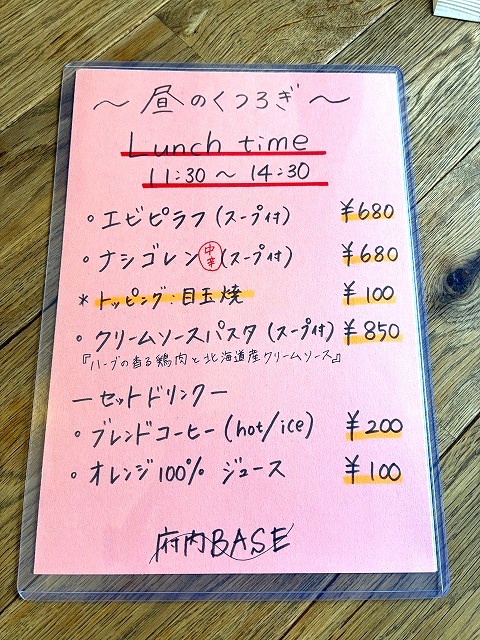 ～昼のくつろぎ～
Lunch time
11:30～14:30
○エビピラフ(スープ付) ¥680
○ナシゴレン 中辛 (スープ付) ¥680
*トッピング:目玉焼 ¥100
○クリームソースパスタ(スープ付) ¥850
『ハーブの香る鶏肉と北海道産クリームソース』
ーセットドリンクー
○ブレンドコーヒー(hot/ice) ¥200
○オレンジ100% ジュース ¥100
府内BASE